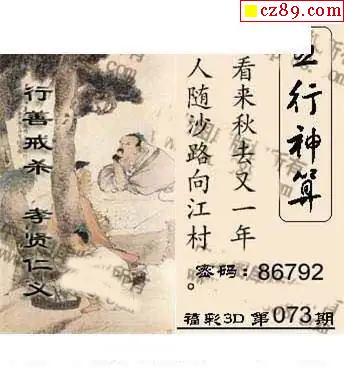 cz89.com
五行神算
看来秋去又一年
人随沙路向江村。
密码：86792
福彩3D 第073期
行善戒杀 孝贤仁义